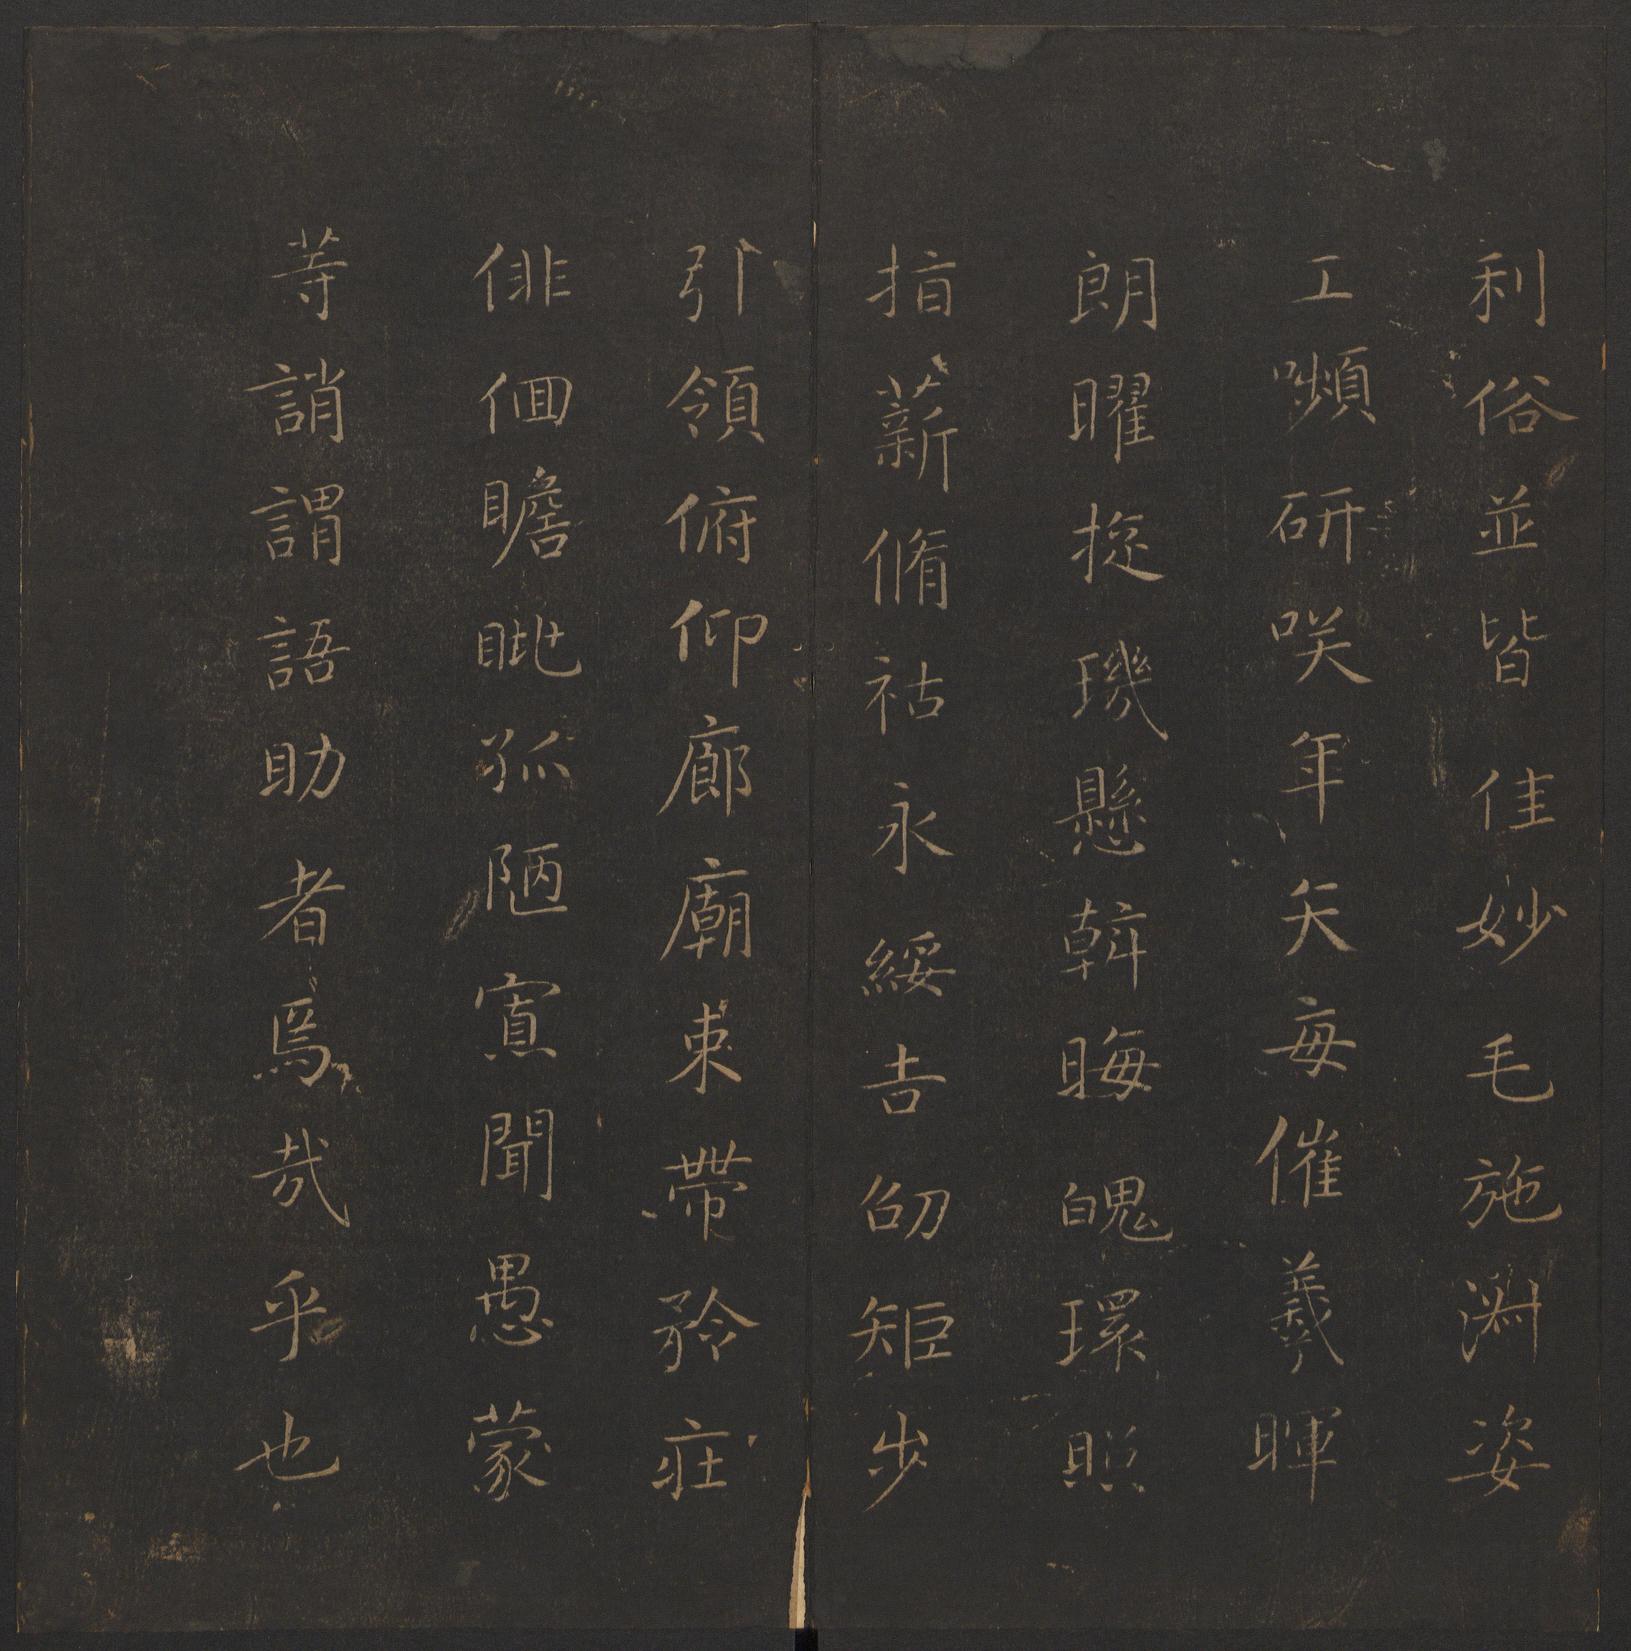 利俗並皆佳妙毛施淵姿
工嚬研咲年矢每催羲暉
朗曜琁璣懸斡晦魄環照
指薪脩祜永綏吉劭矩步
引領俯仰廊廟束帶矜莊
俳佪瞻眺孤陋寡聞愚蒙
等誚謂語助者焉哉乎也